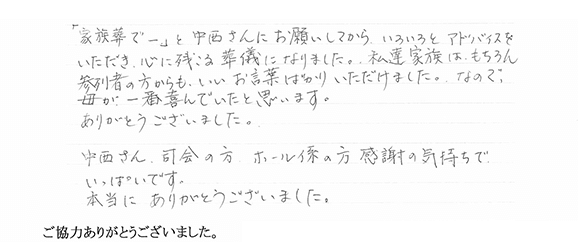 「家族葬でー」と中西さんにお願いしてから、いろいろと アドバイスを
いただき、心に残る葬儀になりました。私達家族は、もちろん
参列者の方からも、いいお言葉ばかりいただけました。なので、
母が、一番喜んでいたと思います。
ありがとうございました。
中西さん、司会の方、ホール係の方 感謝の気持ちで
いっぱいです。
本当に ありがとうございました。
ご協力ありがとうございました。